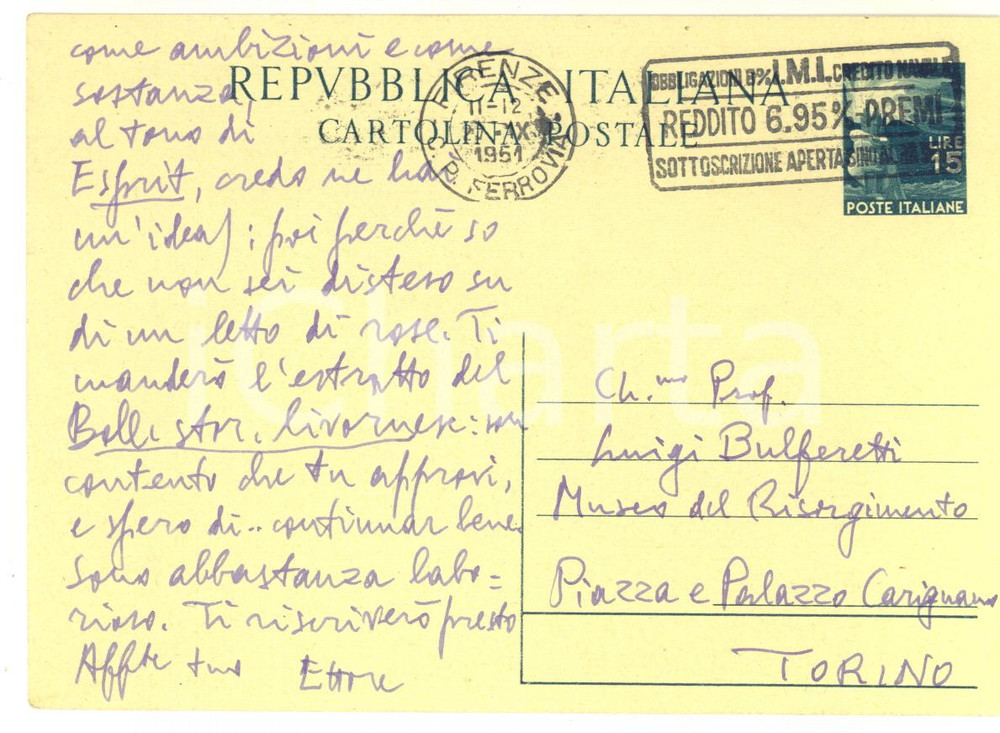 come ambizioni e come
sostanza,
al tono di
Esprit, credo ne hai
un'idea); poi perché so
che non sei disteso su
di un letto di rose. Ti
manderò l'estratto del
Boll. stor. livornese: son
contento che tu approvi,
e spero di.. continuar bene.
Sono abbastanza labo=
rioso. Ti riscriverò presto
Affte tuo Ettore
REPVBBLICA ITALIANA
CARTOLINA POSTALE
FIRENZE
11-12
IX
1951
FERROVIA
OBBLIGAZIONI 6% I.M.I. CREDITO NAVALE
REDDITO 6.95% PREMI
SOTTOSCRIZIONE APERTA SINO AL
LIRE
15
POSTE ITALIANE
Ch.mo Prof.
Luigi Bulferetti
Museo del Risorgimento
Piazza e Palazzo Carignano
TORINO
iCharta